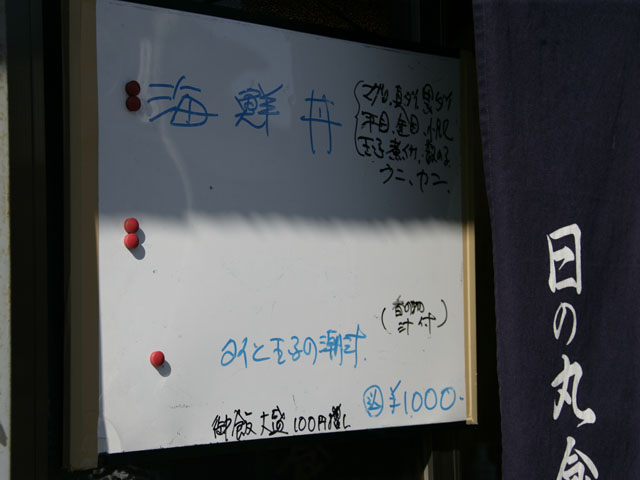 海鮮丼
マグロ、真ダイ、黒ダイ
平目、金目、イカ
玉子、煮イカ、数の子
ウニ、カニ、
タイと玉子の潮汁
汁付
込 ¥1000-
御飯大盛100円増し
日の丸食